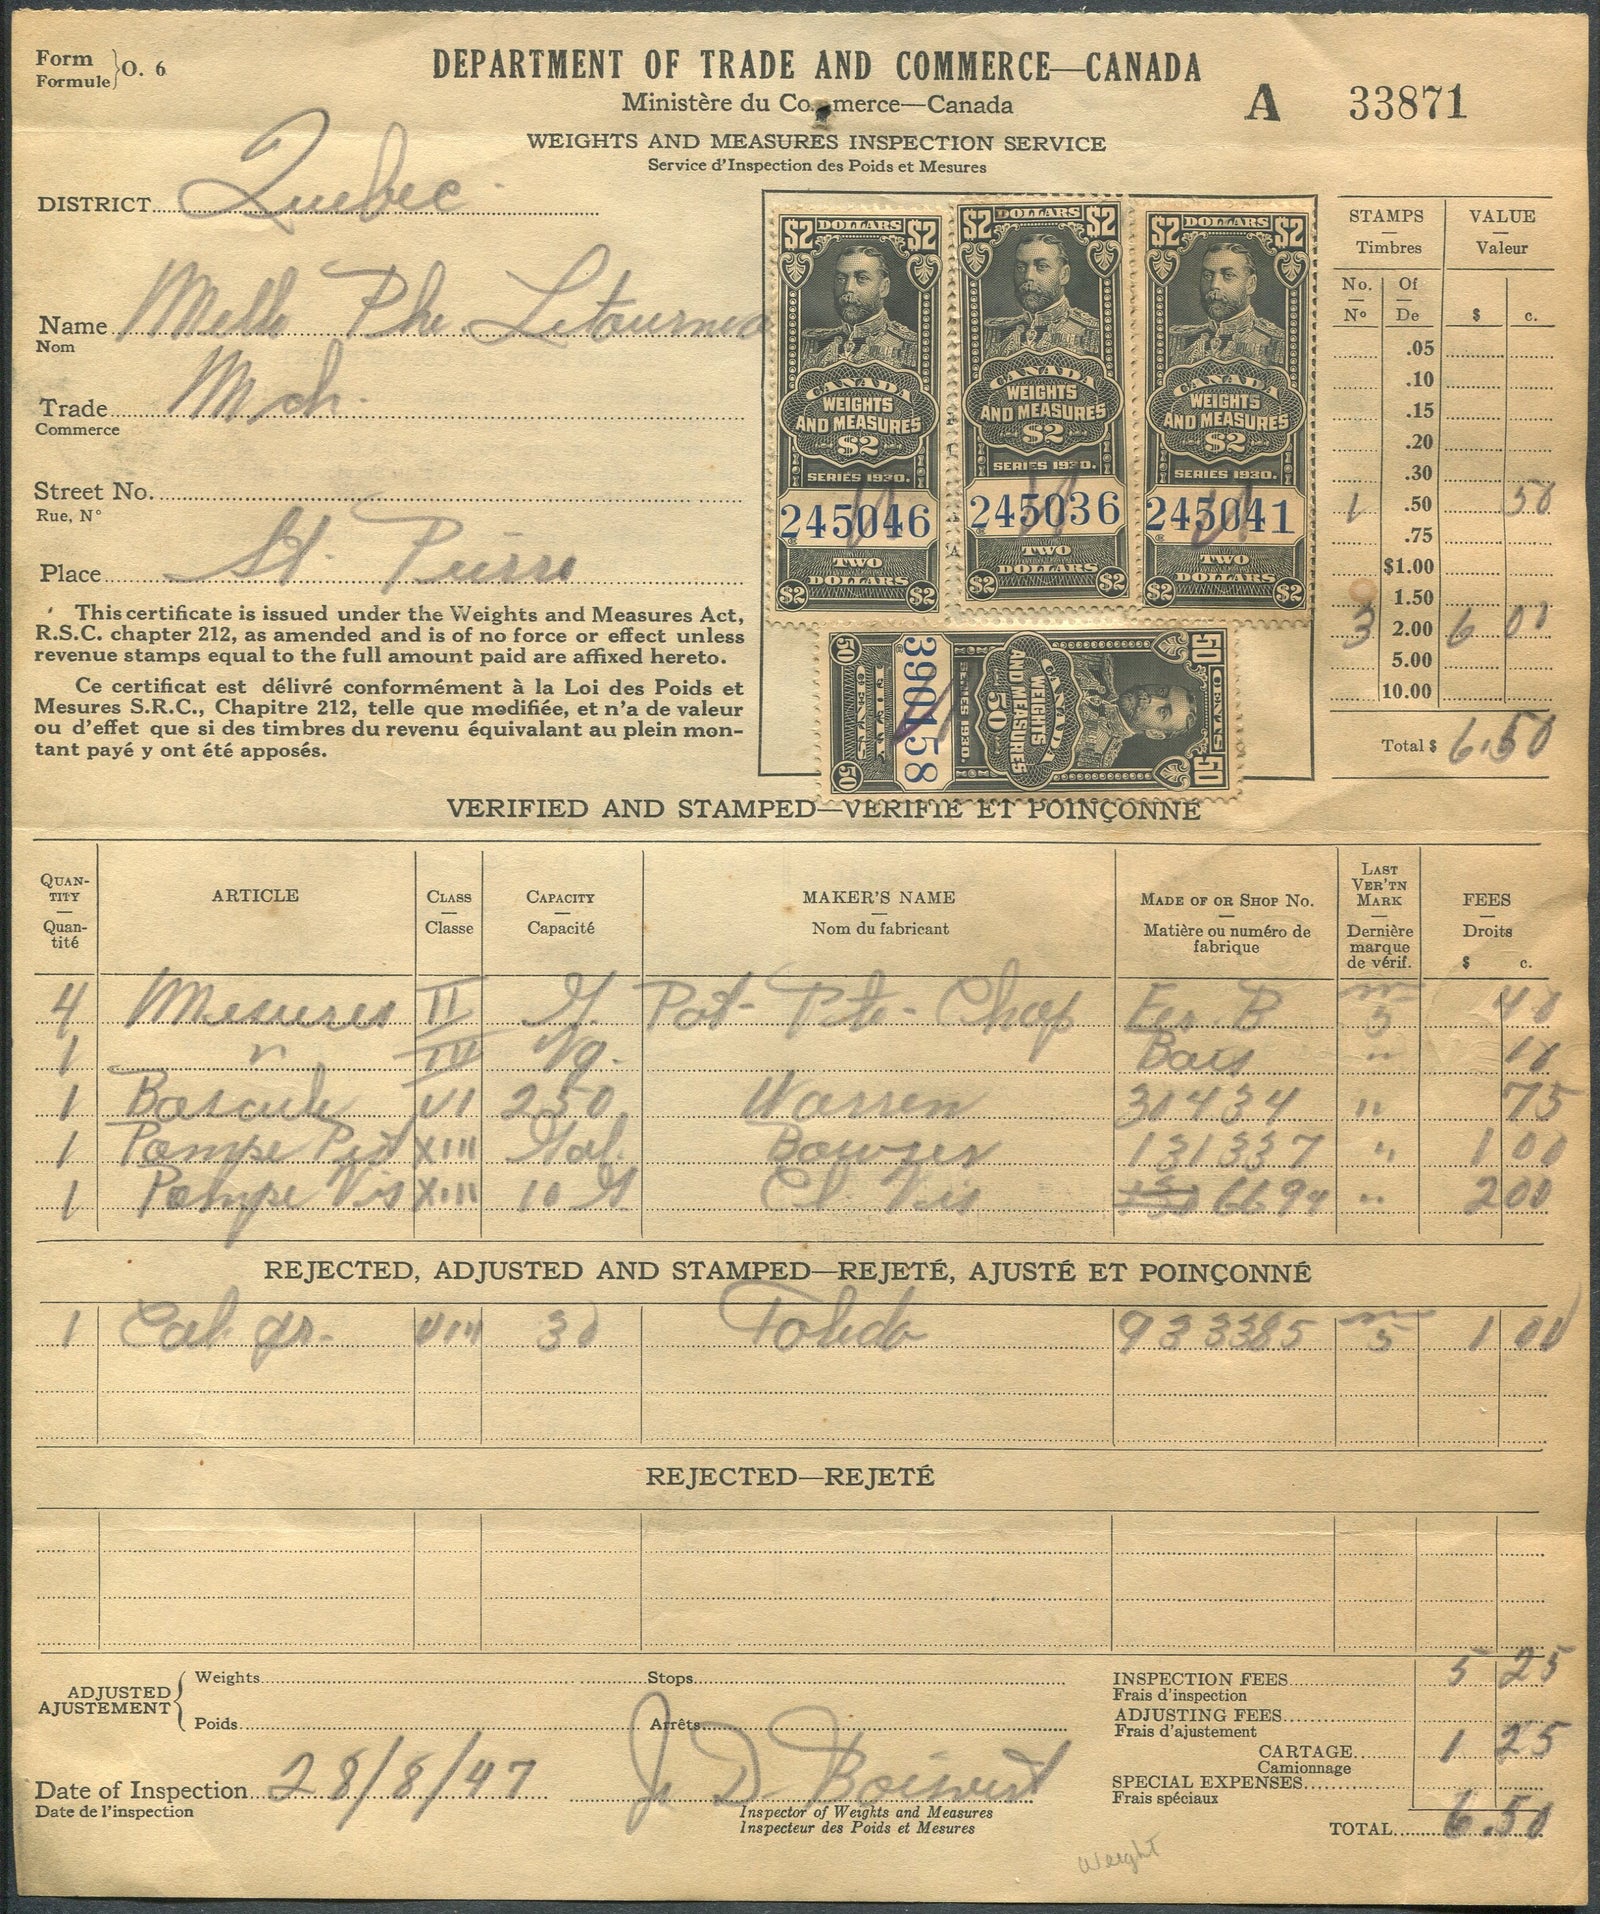 Form
Formule } O. 6
DEPARTMENT OF TRADE AND COMMERCE—CANADA
Ministère du Commerce—Canada
A 33871
WEIGHTS AND MEASURES INSPECTION SERVICE
Service d'Inspection des Poids et Mesures
DISTRICT Quebec
Name Melle Phe Letournea
Nom
Trade Mch.
Commerce
Street No.
Rue, N°
Place St. Pierre
This certificate is issued under the Weights and Measures Act,
R.S.C. chapter 212, as amended and is of no force or effect unless
revenue stamps equal to the full amount paid are affixed hereto.
Ce certificat est délivré conformément à la Loi des Poids et
Mesures S.R.C., Chapitre 212, telle que modifiée, et n'a de valeur
ou d'effet que si des timbres du revenu équivalant au plein mon-
tant payé y ont été apposés.
$2 DOLLARS $2
CANADA
WEIGHTS
AND MEASURES
$2
SERIES 1930.
245046
TWO
DOLLARS
$2 $2
$2 DOLLARS $2
CANADA
WEIGHTS
AND MEASURES
$2
SERIES 1930.
245036
TWO
DOLLARS
$2 $2
$2 DOLLARS $2
CANADA
WEIGHTS
AND MEASURES
$2
SERIES 1930.
245041
TWO
DOLLARS
$2 $2
50 CENTS 50
CANADA
WEIGHTS
AND MEASURES
50
SERIES 1930.
390458
FIFTY
CENTS
50 50
STAMPS VALUE
Timbres Valeur
No. Of
N° De $ c.
.05
.10
.15
.20
.30
1 .50 50
.75
$1.00
1.50
3 2.00 6 00
5.00
10.00
Total $ 6.50
VERIFIED AND STAMPED—VÉRIFIÉ ET POINÇONNÉ
QUAN-
TITY
Quan-
tité
ARTICLE
CLASS
Classe
CAPACITY
Capacité
MAKER'S NAME
Nom du fabricant
MADE OF OR SHOP No.
Matière ou numéro de
fabrique
LAST
VER'TN
MARK
Dernière
marque
de vérif.
FEES
Droits
$ c.
4 Mesures II G. Pot- Pte- Chop Fer. B 5 40
1 " IV Bois " 10
1 Bascule VI 250 Warren 31434 " 75
1 Pompe Pist XIII Gal. Bowser 131337 " 1 00
1 Pompe Vis XIII 10 G Cl Vis 6694 " 2 00
REJECTED, ADJUSTED AND STAMPED—REJETÉ, AJUSTÉ ET POINÇONNÉ
1 Cal gr. VIII 30 Toledo 933385 5 1 00
REJECTED—REJETÉ
ADJUSTED
AJUSTEMENT
Weights Stops
Poids Arrêts
INSPECTION FEES 5 25
Frais d'inspection
ADJUSTING FEES
Frais d'ajustement
CARTAGE 1 25
Camionnage
SPECIAL EXPENSES
Frais spéciaux
TOTAL 6.50
Date of Inspection 28/8/47
Date de l'inspection
J. D Boisvert
Inspector of Weights and Measures
Inspecteur des Poids et Mesures
Weight